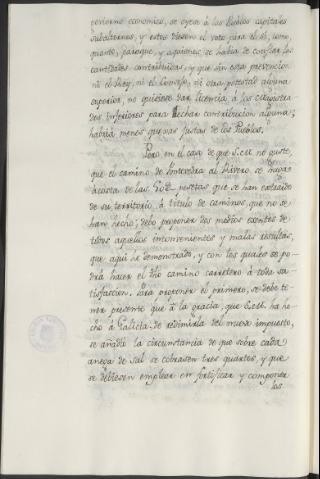 govierno economico, se oyera à los Pueblos capitales
subalternos, y estos diesen el voto para el si, como,
quanto, paraque, y aquienes, se habia de confiar las
cantidades contribuidas, y que sin esta prevencion
ni el Rey, ni el Consejo, ni otra potestad alguna
superior, no quisiese dar licencia à los
dros Inferiores para hechar contribucion alguna;
habria menos quexas justas de los Pueblos.
Pero en el caso de que S.M. no guste,
que el camino de Pontevedra al Rivero, se haga
àcosta de las pesetas que se han extraido
de su territorio à titulo de caminos, que no se
han hecho; debo proponer dos medios exentos de
todos aquellos inconvenientes y malas resultas,
que aqui he demonstrado, y con los quales se po-
drà hacer el dho camino carretero à toda sa-
tisfaccion. Para proponer el primero, se debe te-
ner presente que à la gracia, que S.M. ha he-
cho à Galicia, de redimirla del nuevo impuesto,
se añadiò la circunstancia de que sobre cada
anega de Sal se cobrasen tres quartos, y que
se debiesen emplear en fortificar y componer
los